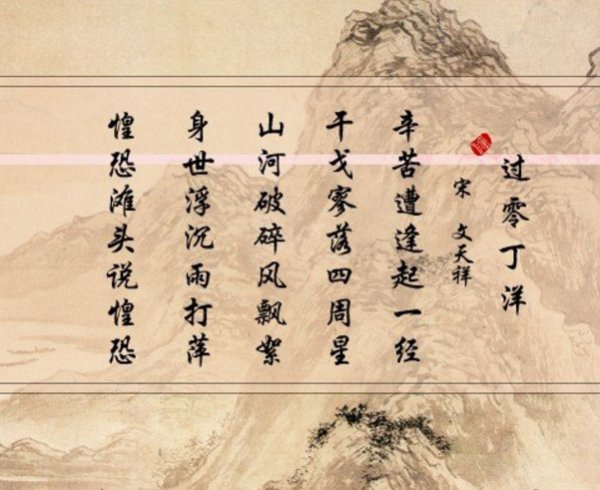 过零丁洋
宋 文天祥
辛苦遭逢起一经
干戈寥落四周星
山河破碎风飘絮
身世浮沉雨打萍
惶恐滩头说惶恐